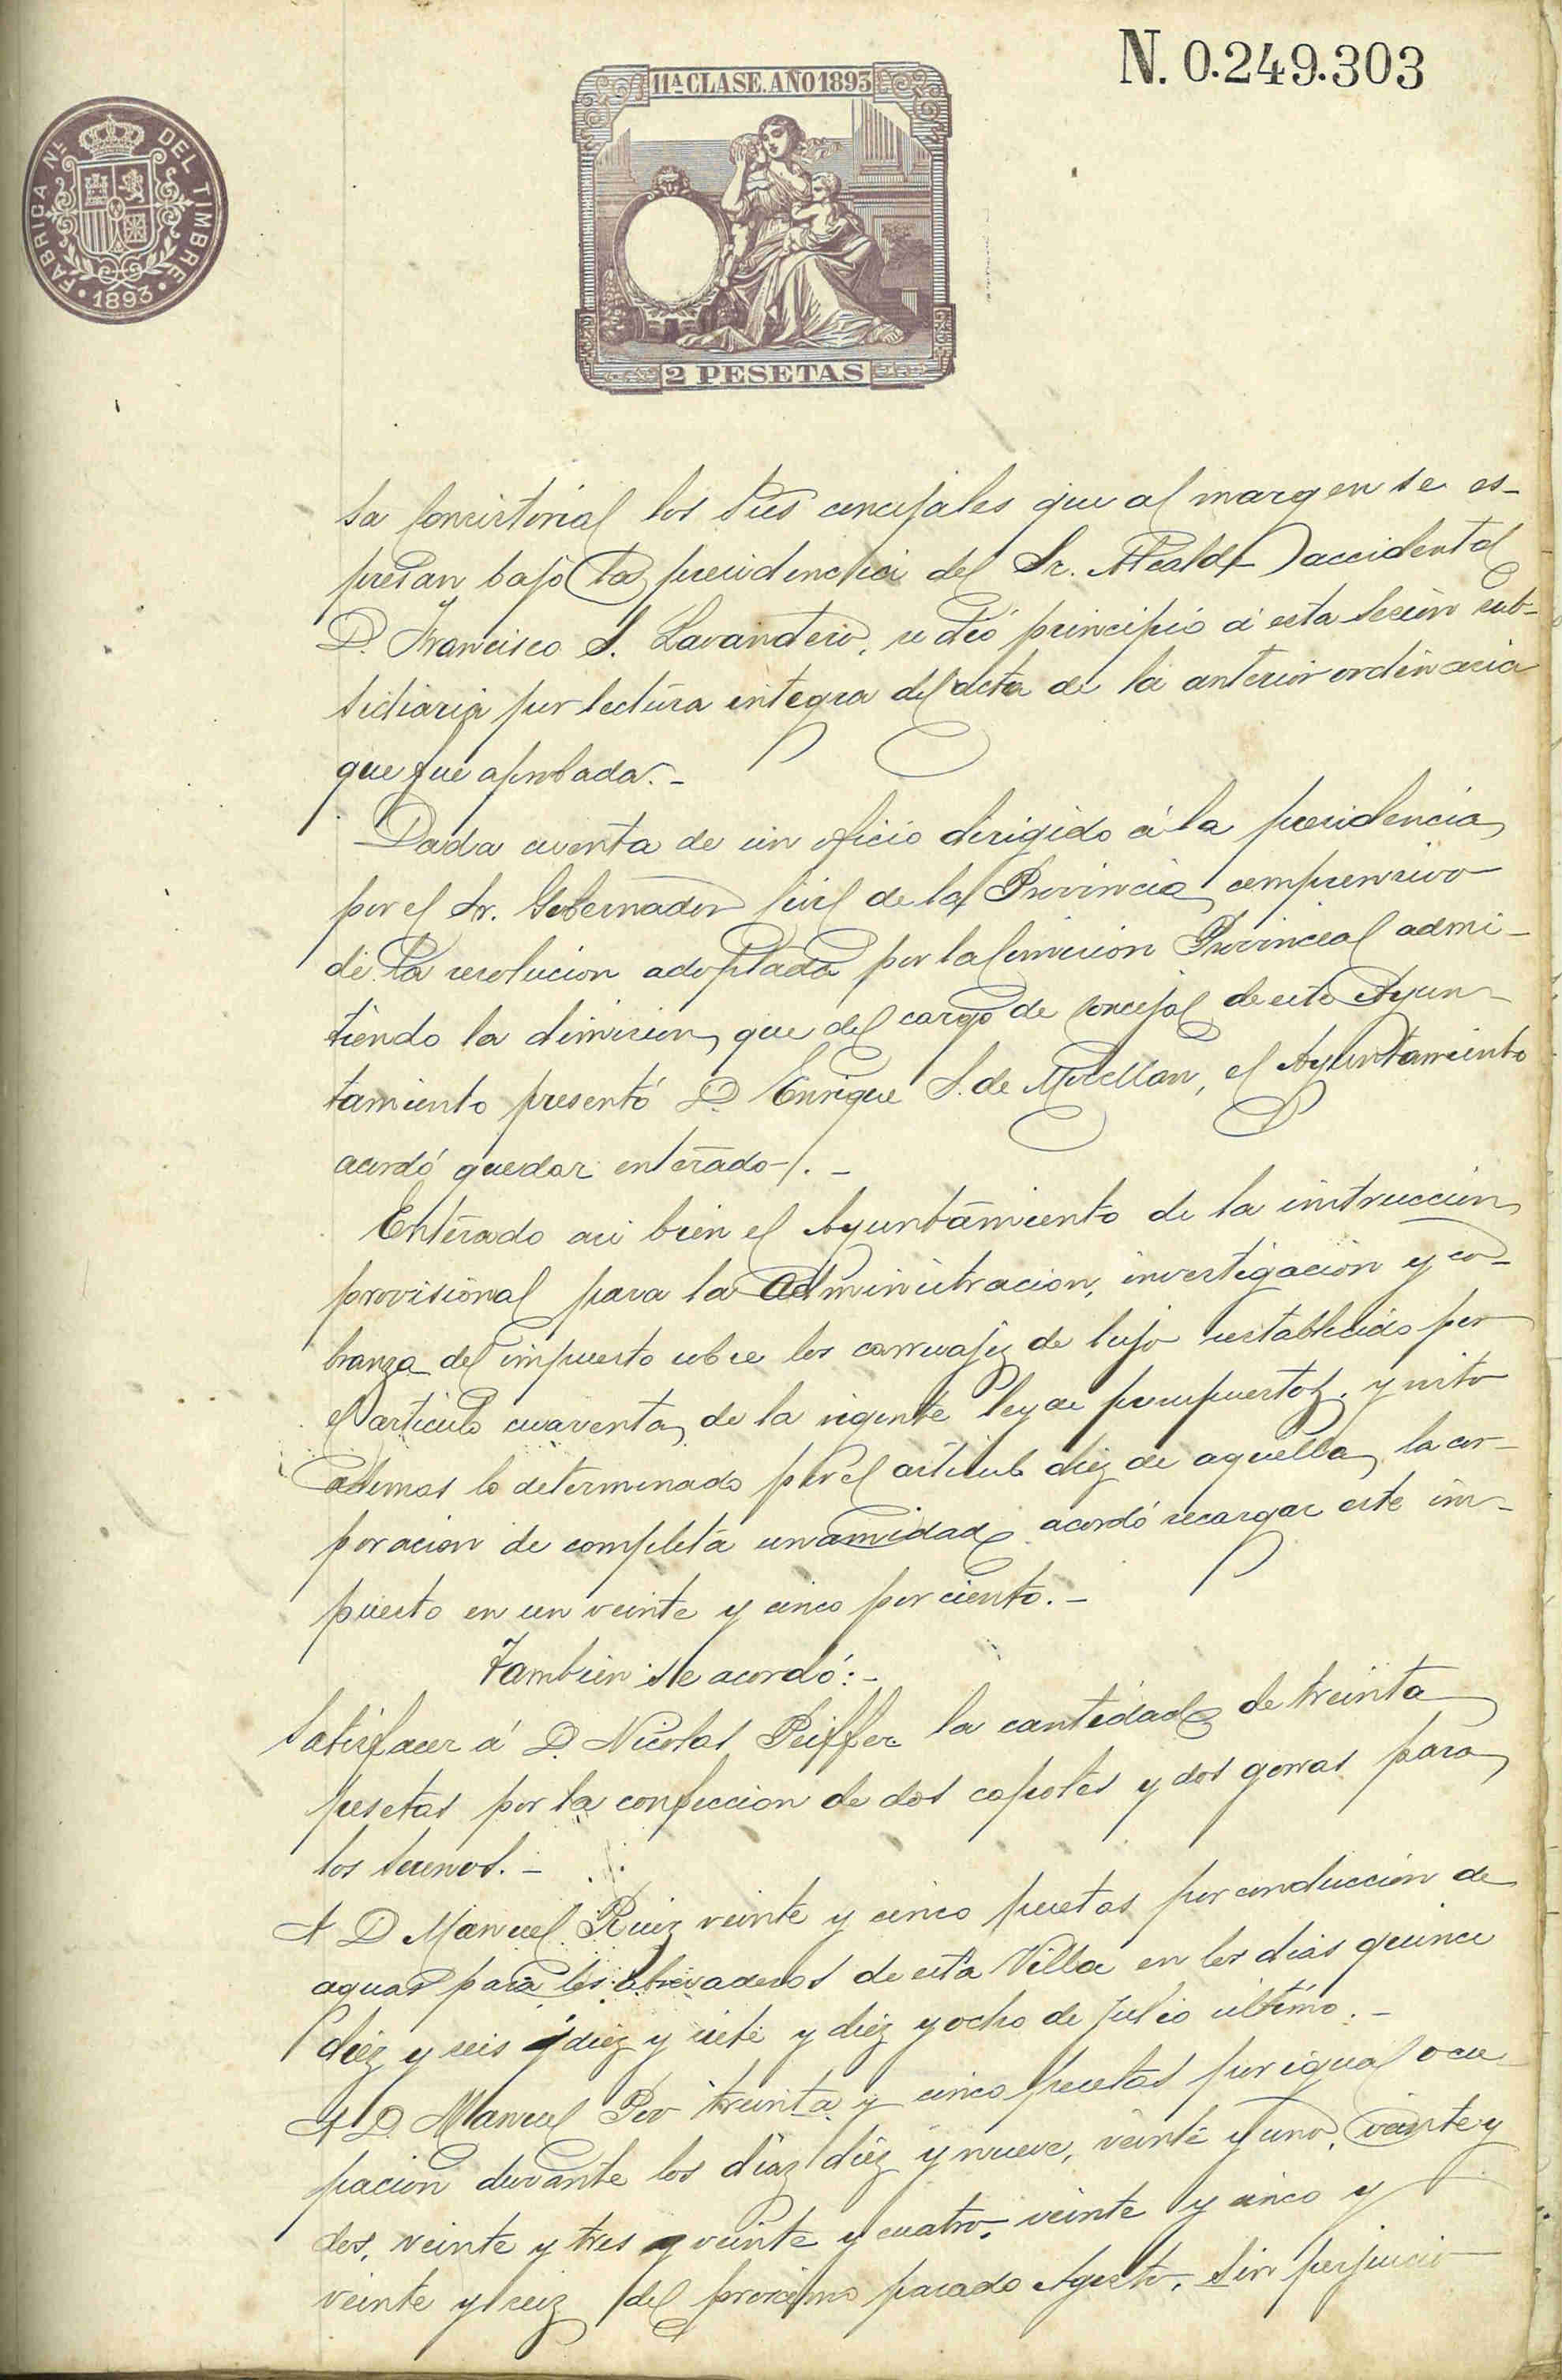 N. 0.249.303
11ª CLASE. AÑO 1893
FABRICA NL. DEL TIMBRE
1893
2 PESETAS
sa Consistorial los Sres concejales que al margen se es-
presan bajo la presidencia del Sr. Alcalde accidental
D. Francisco S. Lavandero, se dió principio á esta sesión sub-
sidiaria por lectura integra del acta de la anterior ordinaria
que fue aprobada.-
Dada cuenta de un oficio dirigido á la presidencia
por el Sr. Gobernador Civil de la Provincia, comprensivo
de la resolucion adoptada por la Comision Provincial admi-
tiendo la dimision, que del cargo de Concejal de este Ayun-
tamiento presentó D. Enrique S. de Movellan, el Ayuntamiento
acordó quedar enterado.-
Enterado asi bien el Ayuntamiento de la instruccion
provisional para la administracion, investigacion y co-
branza del impuesto sobre los carruajes de lujo restablecido por
el articulo cuarenta, de la vigente ley de presupuestos, y visto
ademas lo determinado por el articulo diez de aquella, la cor-
poracion de completa unamidad acordó recargar este im-
puesto en un veinte y cinco por ciento.-
Tambien se acordó:-
Satisfacer á D. Nicolas Peiffer la cantidad de treinta
pesetas por la confeccion de dos capotes y dos gorras para
los serenos.-
A D Manuel Ruiz veinte y cinco pesetas por conducción de
aguas para los abrevaderos de esta Villa en los dias quince
diez y seis y diez y siete y diez y ocho de Julio último.-
A D. Manuel treinta y cinco pesetas por igual ocu-
pacion durante los diaz diez y nueve, veinte y uno, veinte y
dos, veinte y tres y veinte y cuatro, veinte y cinco y
veinte y seiz del proximo pasado Agosto, sin perjuicio